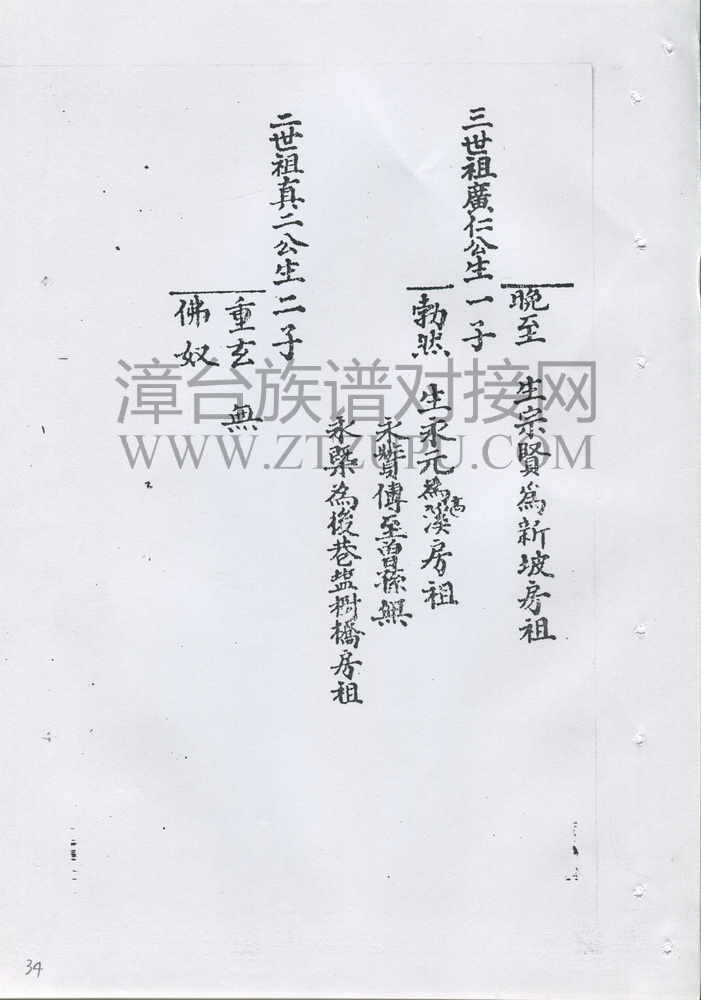 晚至 生宗賢爲新坡房祖
三世祖廣仁公生一子
勃然 生永元爲高溪房祖
永贊傳至曾孫無
永槩爲後巷盐樹橋房祖
二世祖真二公生二子
重玄 無
佛奴
漳台族谱对接网
WWW.ZTZUPU.COM
34